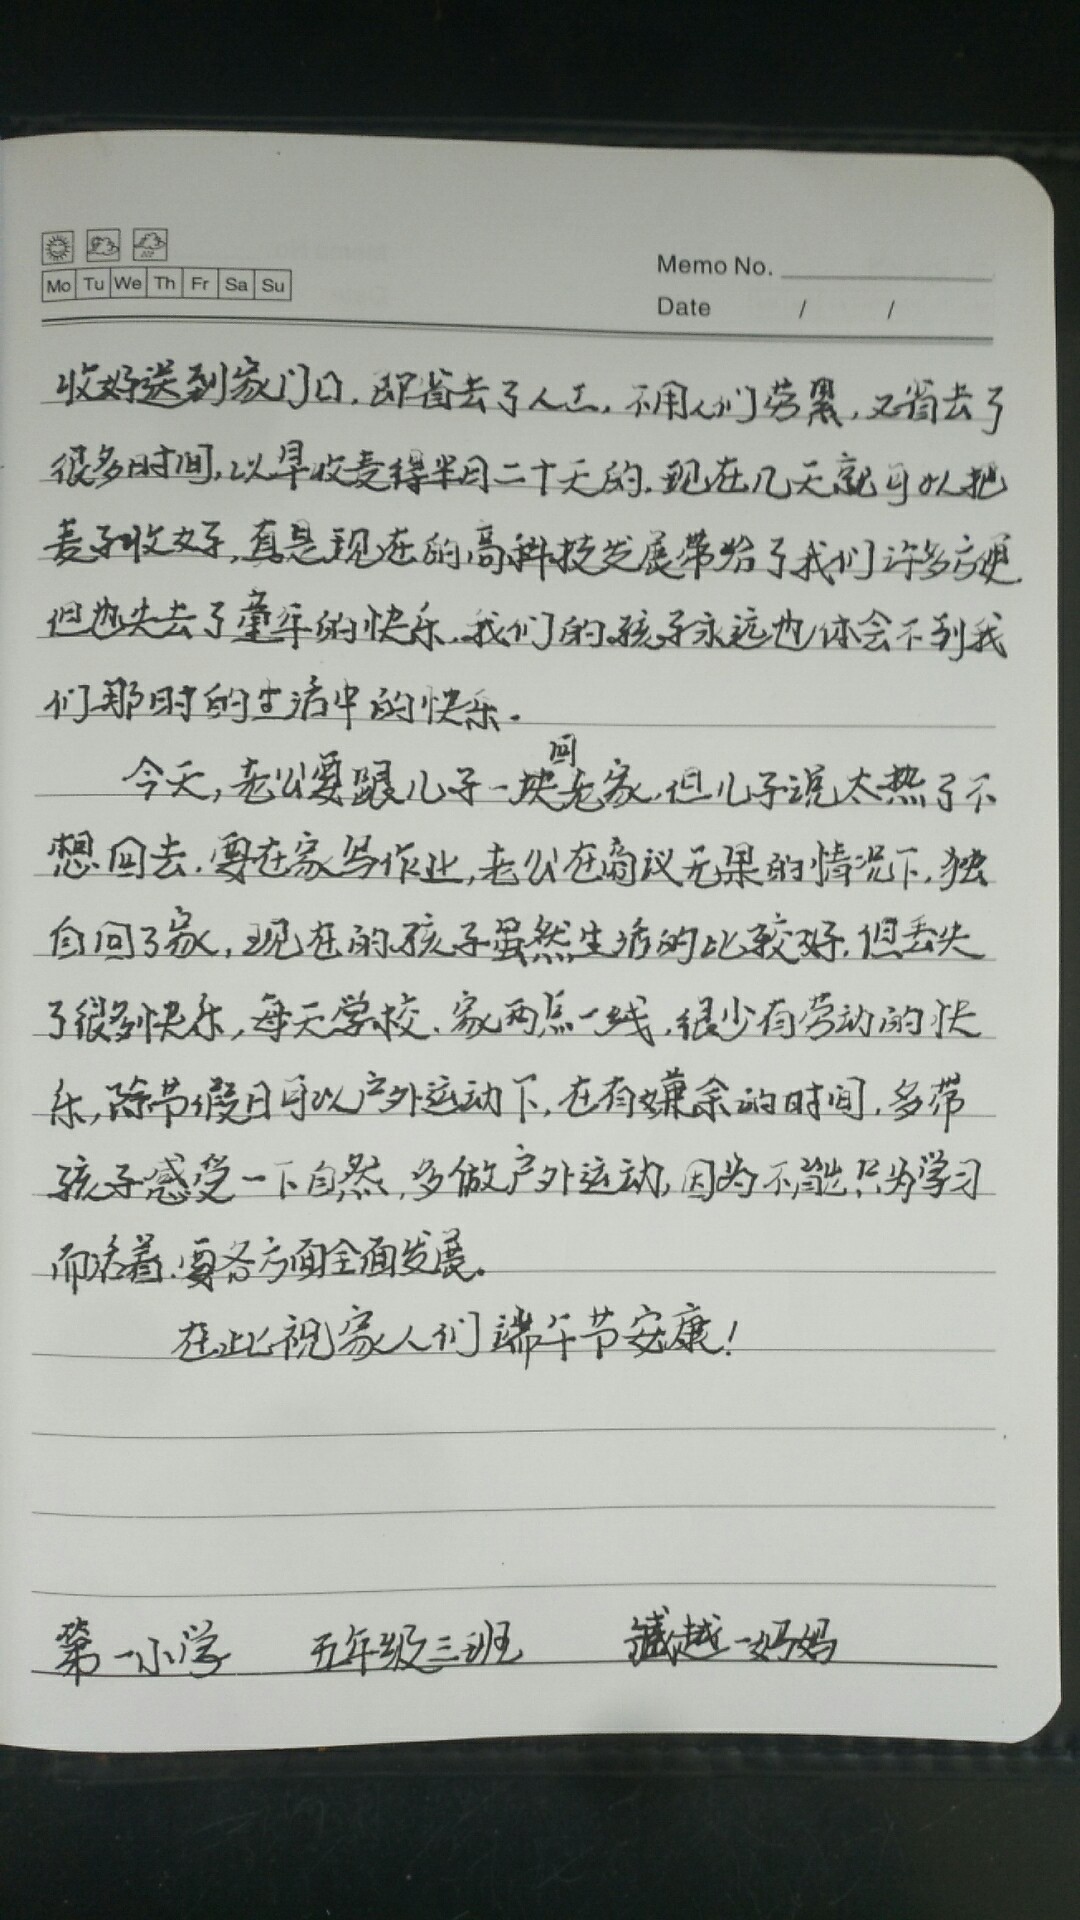 Mo Tu We Th Fr Sa Su
Memo No.
Date / /
收好送到家门口,即省去了人工,不用人们劳累,又省去了
很多时间,以早收麦得半月二十天的,现在几天就可以把
麦子收好,真是现在的高科技发展带给了我们许多方便
但也失去了童年的快乐,我们的孩子永远也体会不到我
们那时的生活中的快乐.
今天,老公要跟儿子一块回老家,但儿子说太热了不
想回去,要在家写作业,老公在商议无果的情况下,独
自回了家,现在的孩子虽然生活的比较好,但丢失
了很多快乐,每天学校、家两点一线,很少有劳动的快
乐,除节假日可以户外运动下,在有嫌余的时间,多带
孩子感受一下自然,多做户外运动,因为不能只为学习
而活着,要各方面全面发展。
在此祝家人们端午节安康!
第一小学 五年级三班 越一妈妈